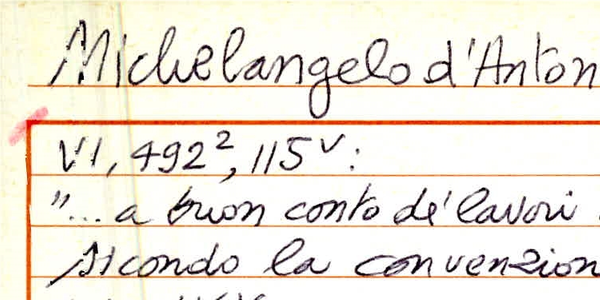 Michelangelo d'Anton
VI, 492², 115ᵛ:
"... a buon conto de' lavori
secondo la convenzion